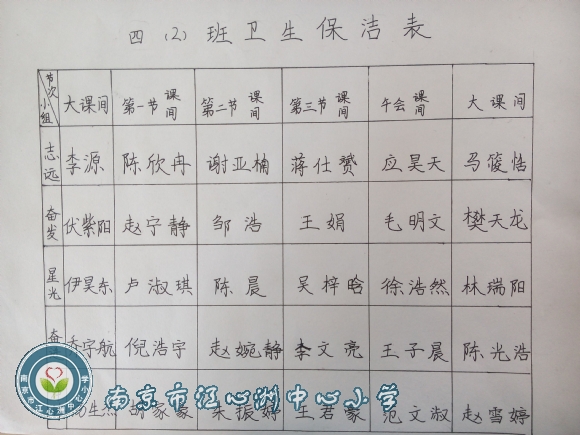 四（2）班卫生保洁表
节次 小组 大课间 第一节课间 第二节课间 第三节课间 午会课间 大课间
志远 李源 陈欣冉 谢亚楠 蒋仕赟 应昊天 马筱恬
奋发 伏紫阳 赵宁静 邹浩 王娟 毛明文 樊天龙
星光 伊昊东 卢淑琪 陈晨 吴梓晗 徐浩然 林瑞阳
奋 李宇航 倪浩宇 赵婉静 李文亮 王子晨 陈光浩
南京市江心洲中心小学
胡家豪 朱振婷 王君豪 范文淑 赵雪婷